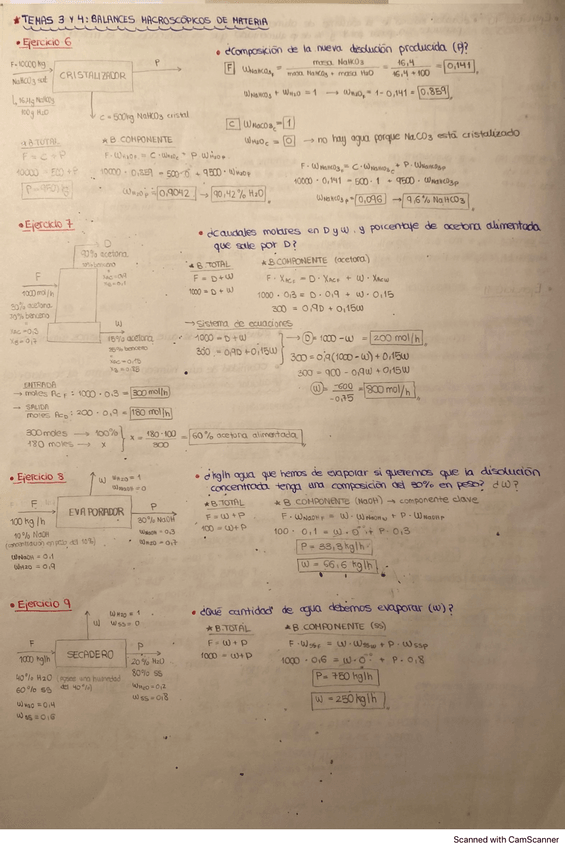 * TEMAS 3 Y 4: BALANCES MACROSCÓPICOS DE MATERIA
• Ejercicio 6
F=10000kg
NaHCO3 sat
CRISTALIZADOR
P
C = 500kg NaHCO3 cristal
100g H2O
* B. TOTAL
F = C + P
* B COMPONENTE
F · WH2OF = C · WH2OC + P · WH2OP
WH2OP = 0,9042 → 90,42% H2O
• ¿Composición de la nueva disolución producida (P)?
F WNaHCO3F = masa NaHCO3 / masa NaHCO3 + masa H2O = 16,4 / 16,4 + 100 = 0,141
WNaHCO3 + WH2O = 1 → WH2OF = 1 - 0,141 = 0,859
C WNaCO3C = 1
WH2OC = 0 → no hay agua porque NaCO3 está cristalizado
F · WNaHCO3F = C · WNaHCO3C + P · WNaHCO3P
10000 · 0,141 = 500 · 1 + 9500 · WNaHCO3P
WNaHCO3P = 0,096 → 9,6% NaHCO3
• Ejercicio 7
D
90% acetona
10% benceno
F
1000 mol/h
30% acetona
70% benceno
XAC = 0,3
XB = 0,7
W
15% acetona
85% benceno
• ¿Caudales molares en D y W y porcentaje de acetona alimentada
que sale por D?
* B. TOTAL
F = D + W
1000 = D + W
* B. COMPONENTE (acetona)
F · XACF = D · XACD + W · XACW
1000 · 0,3 = D · 0,9 + W · 0,15
300 = 0,9D + 0,15W
→ Sistema de ecuaciones
1000 = D + W
300 = 0,9D + 0,15W
→ D = 1000 - W = 200 mol/h
300 = 0,9(1000 - W) + 0,15W
300 = 900 - 0,9W + 0,15W
W = -600 / -0,75 = 800 mol/h
ENTRADA
→ moles ACF: 1000 · 0,3 = 300 mol/h
→ SALIDA
moles ACD: 200 · 0,9 = 180 mol/h
300 moles → 100%
180 moles → x
x = 180 · 100 / 300 = 60% acetona alimentada
• Ejercicio 8
W WH2O = 1
WNaOH = 0
F
100 kg/h
10% NaOH
(concentración en peso del 10%)
WNaOH = 0,1
WH2O = 0,9
EVAPORADOR
P
30% NaOH
WNaOH = 0,3
WH2O = 0,7
• ¿kg/h agua que hemos de evaporar si queremos que la disolución
concentrada tenga una composición del 30% en peso? ¿W?
* B. TOTAL
F = W + P
100 = W + P
* B COMPONENTE (NaOH) → componente clave
F · WNaOHF = W · WNaOHW + P · WNaOHP
100 · 0,1 = W · 0 + P · 0,3
P = 33,3 kg/h
W = 66,6 kg/h
• Ejercicio 9
W WH2O = 1
WSS = 0
F
1000 kg/h
40% H2O
60% SS
WH2O = 0,4
WSS = 0,6
SECADERO
P
20% H2O
80% SS
WH2O = 0,2
WSS = 0,8
• ¿Qué cantidad de agua debemos evaporar (W)?
* B. TOTAL
F = W + P
1000 = W + P
* B. COMPONENTE (SS)
F · WSSF = W · WSSW + P · WSSP
1000 · 0,6 = W · 0 + P · 0,8
P = 750 kg/h
W = 250 kg/h
Scanned with CamScanner